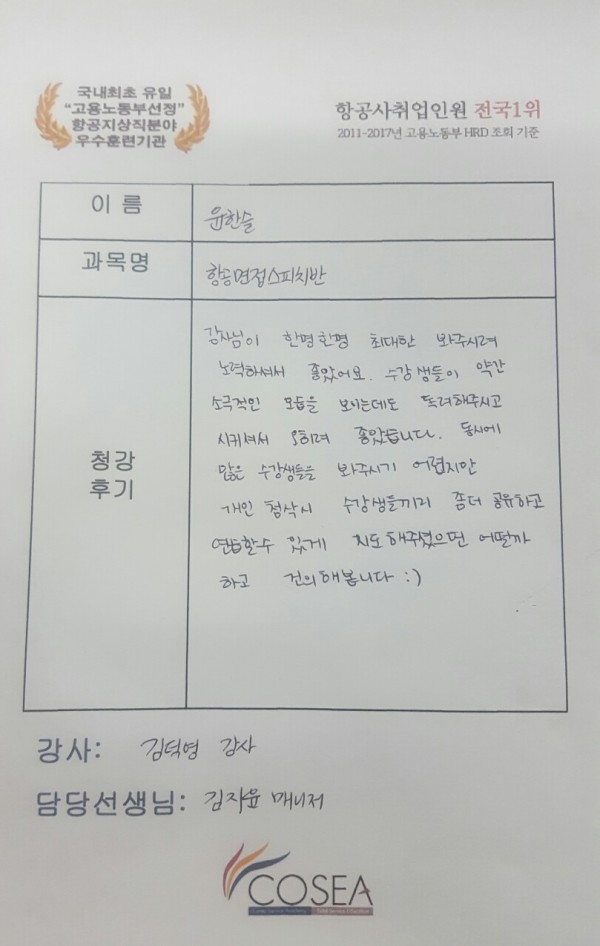 국내최초 유일
"고용노동부선정"
항공지상직분야
우수훈련기관
항공사취업인원 전국1위
2011-2017년 고용노동부 HRD 조회 기준
이 름
윤한슬
과목명
항공면접스피치반
청강
후기
강사님이 한명한명 최대한 봐주시려
노력하셔서 좋았어요. 수강생들이 약간
소극적인 모습을 보이는데도 독려해주시고
시켜셔서 오히려 좋았습니다. 동시에
많은 수강생들을 봐주시기 어렵지만
개인 첨삭시 수강생들끼리 좀더 공유하고
연습할수 있게 지도해주셨으면 어떨까
하고 건의해봅니다 :)
강사: 김덕영 강사
담당선생님: 김지윤 매니저
COSEA